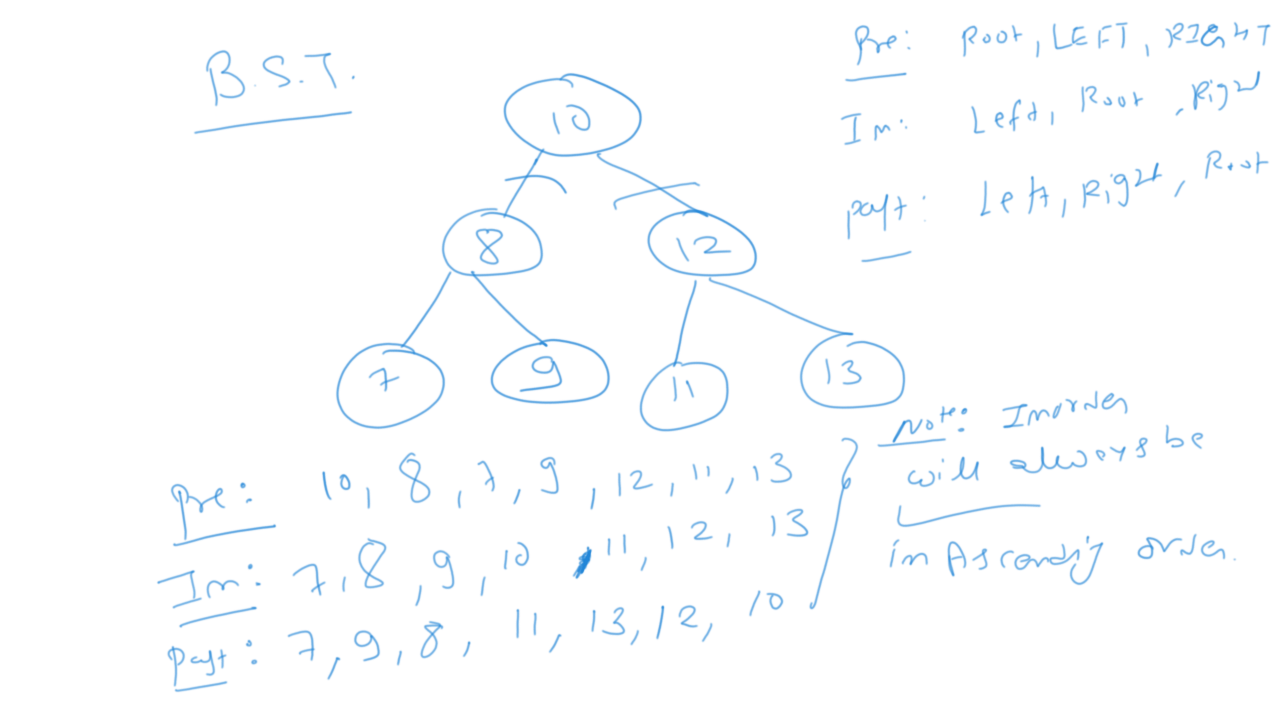 B.S.T.
Pre: Root, LEFT, RIGHT
In: Left, Root, Right
Post: Left, Right, Root
10
8
12
7
9
11
13
Pre: 10, 8, 7, 9, 12, 11, 13
In: 7, 8, 9, 10, 11, 12, 13
Post: 7, 9, 8, 11, 13, 12, 10
Note: Inorder
will always be
in Ascending order.